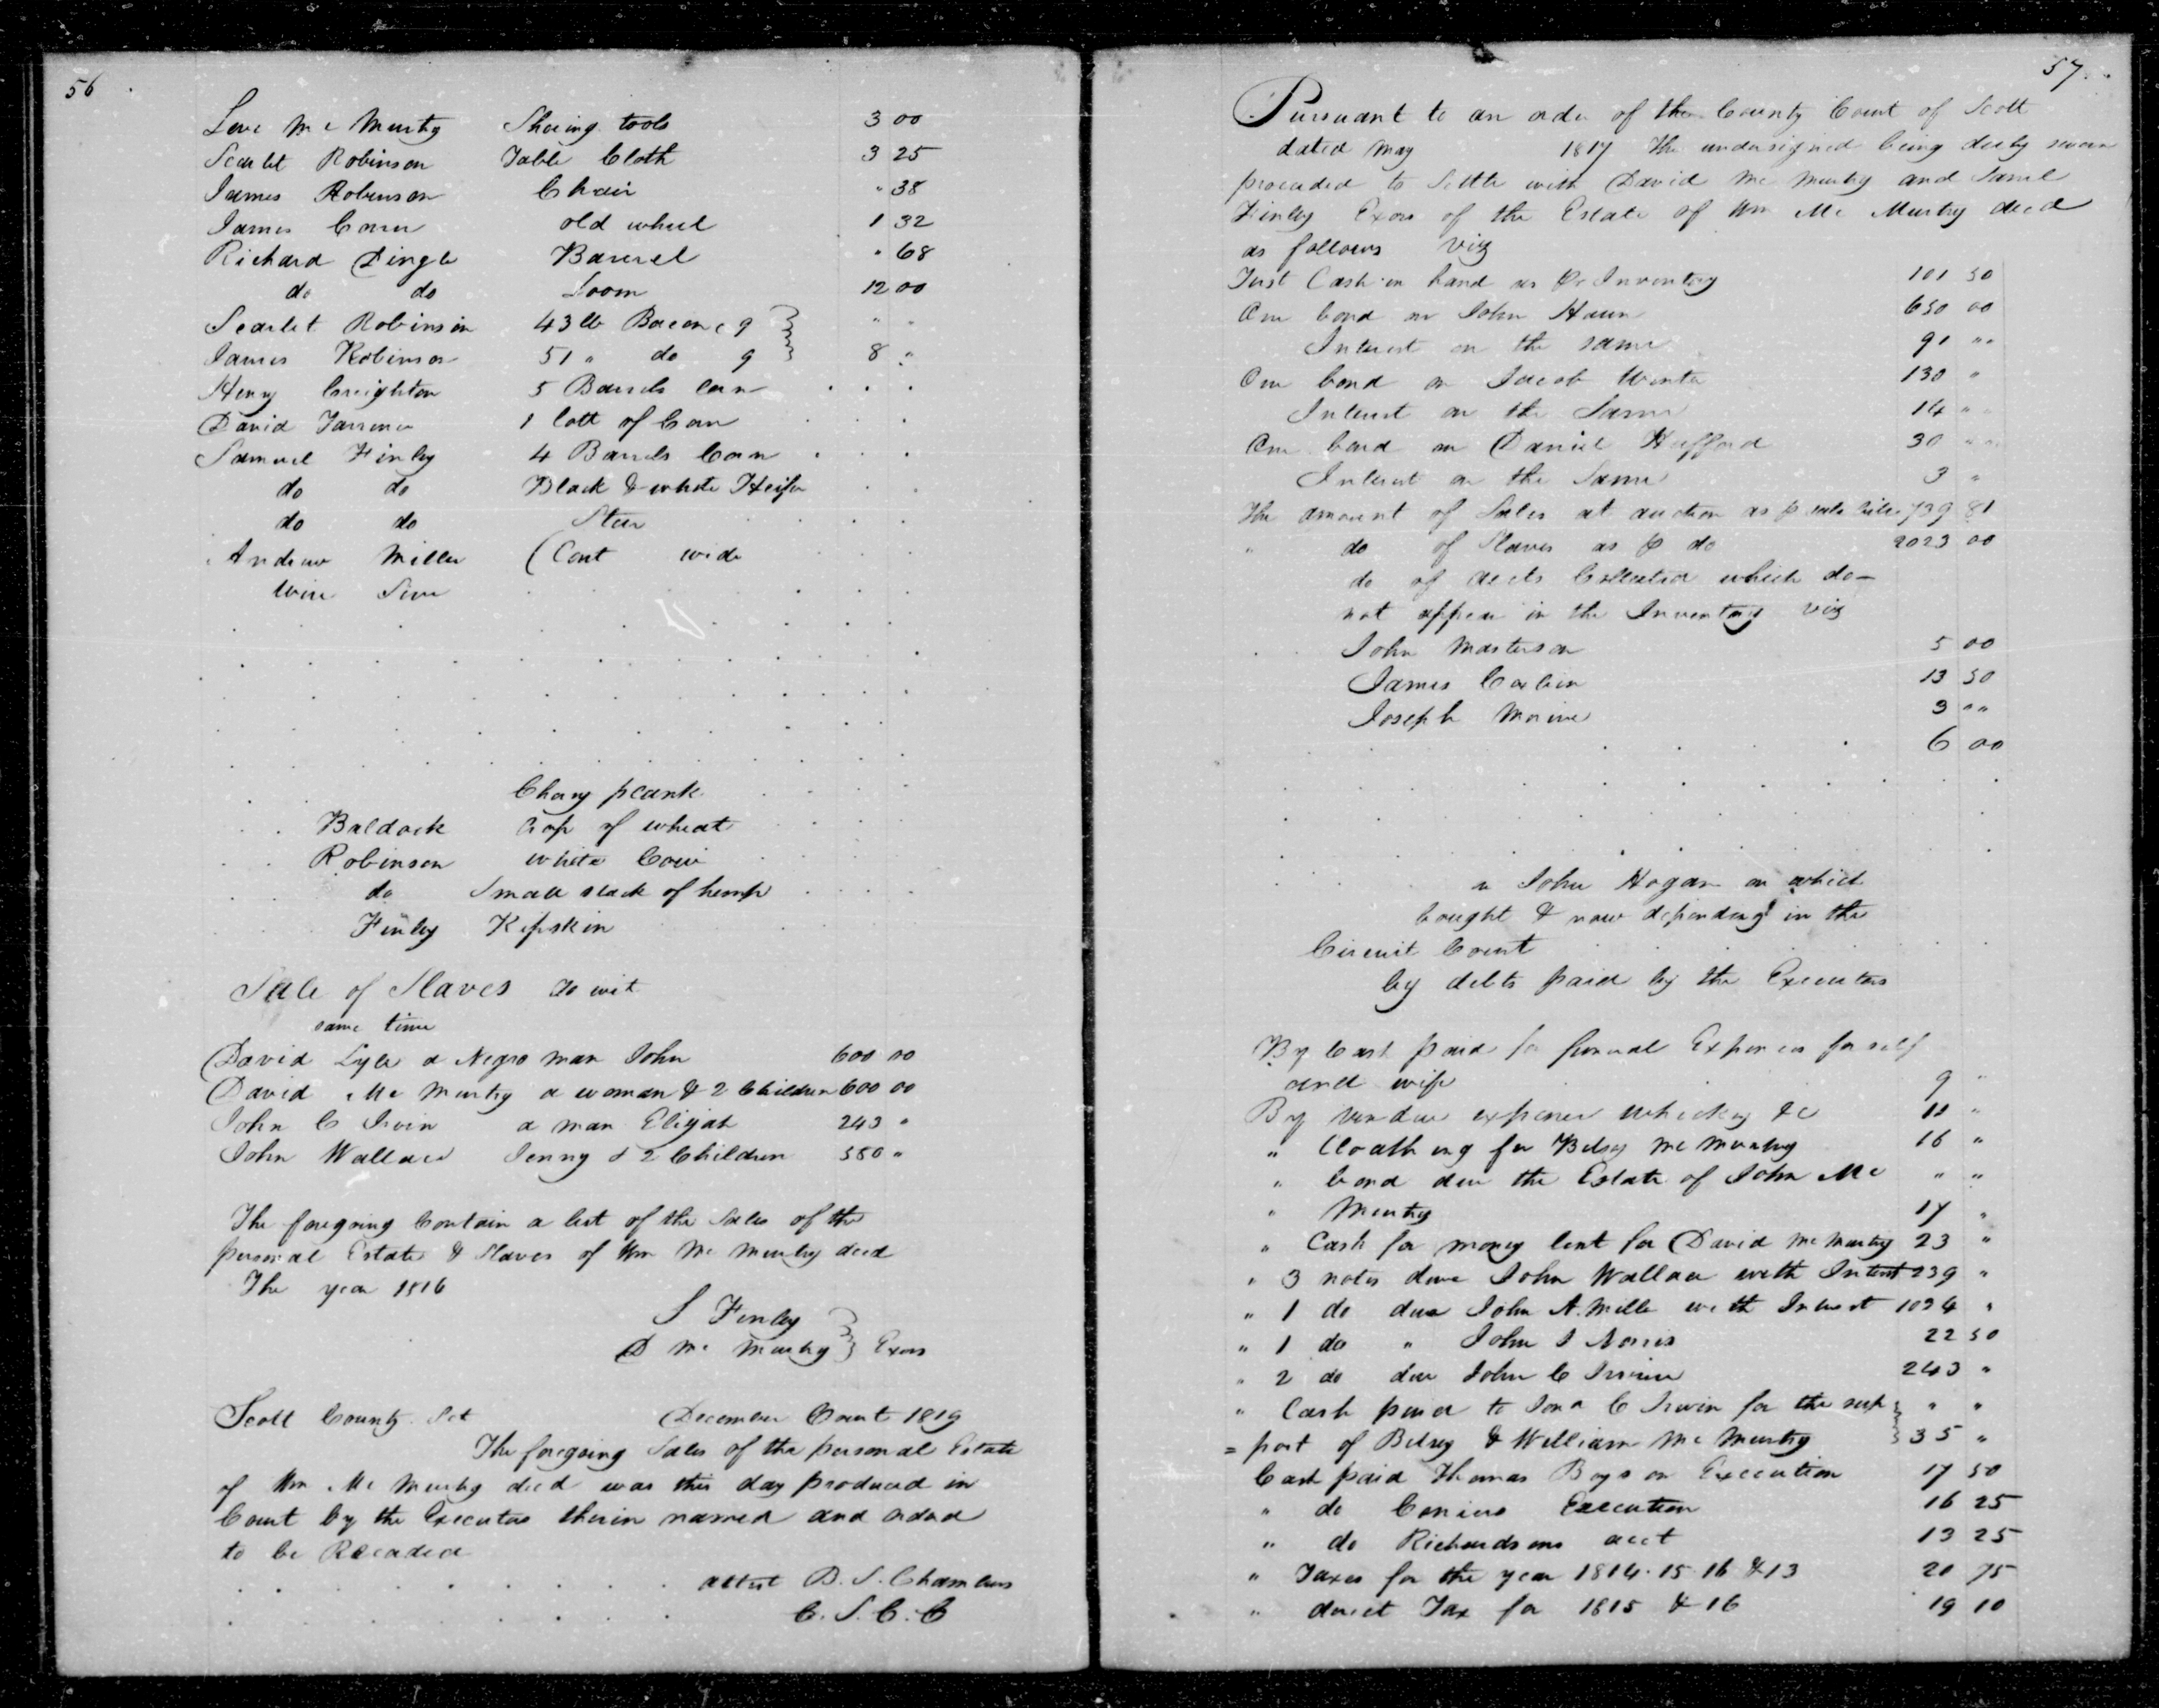 56
Levi Mc Murtry Shoing tools 3 00
Scarlet Robinson Table Cloth 3 25
James Robinson Chair " 38
James old wheel 1 32
Richard Pingle Barrel " 68
do do Loom 12 00
Scarlet Robinson 43 lb Bacon c 9 " "
James Robinson 51 " do 9 8 "
Henry Creighton 5 Barrels Corn
David 1 lott of Corn
Samuel Finley 4 Barrels Corn
do do Black & white Heifer
do do Steer
Andrew Miller (Cont wide
wire Sive
Chary plank
Baldock Crop of wheat
Robinson white Cow
do Small stack of hemp
Finley Kipskin
Sale of Slaves To wit
same time
David Lyle a Negro man John 600 00
David Mc Murtry a woman & 2 Children 600 00
John C Irvin a man Elijah 243 "
John Wallace Jenny & 2 Children 580 "
The foregoing Contain a list of the Sales of the
personal Estate & Slaves of Wm Mc Murtry decd
The year 1816
S Finley
D Mc Murtry } Exors
Scott County Sct December Court 1819
The foregoing Sales of the personal Estate
of Wm Mc Murtry decd was this day produced in
Court by the Executors therin named and orderd
to be Recorded
attest B. S. Chambers
C. S. C. C
57
Pursuant to an order of the County Court of Scott
dated May 1817 the undersigned being duly sworn
proceeded to Settle with David Mc Murtry and Saml
Finley Exors of the Estate of Wm Mc Murtry decd
as follows viz
First Cash in hand as Pr Inventory 101 50
One bond on John Hawn 650 00
Interest on the same 91 ""
One bond on Jacob Winter 130 "
Interest on the Same 14 " "
One bond on Daniel Hufford 30 " "
Interest on the Same 3 "
The amount of Sales at auction as p sale bill 739 81
" do of Slaves as p do 2023 00
do of accts Collected which do
not appear in the Inventory viz
John Masterson 5 00
James Corbin 13 50
Joseph Morine 3 ""
6 00
John Hogan on which
bought & now depending in the
Circuit Court
by debts paid by the Executors
By Cash paid for funeral Expences for self
and wife 9 "
By vendue expences whiskey &c "
" Cloathing for Betsy Mc Murtry 16 "
" bond due the Estate of John Mc " "
" Murtry 17 "
" Cash for money lent for David Mc Murtry 23 "
" 3 notes due John Wallace with Interst 239 "
" 1 do due John A. Mille with Interest 1094 "
" 1 do " John I Norris 22 50
" 2 do due John C Irvine 243 "
" Cash paid to C Irwin for the sup " "
= port of Betsey & William Mc Murtry 35 "
Cash paid Thomas Boys on Execution 17 50
" do Execution 16 25
" do Richardsons acct 13 25
" Taxes for the year 1814. 15 16 & 13 20 75
" direct Tax for 1815 & 16 19 10